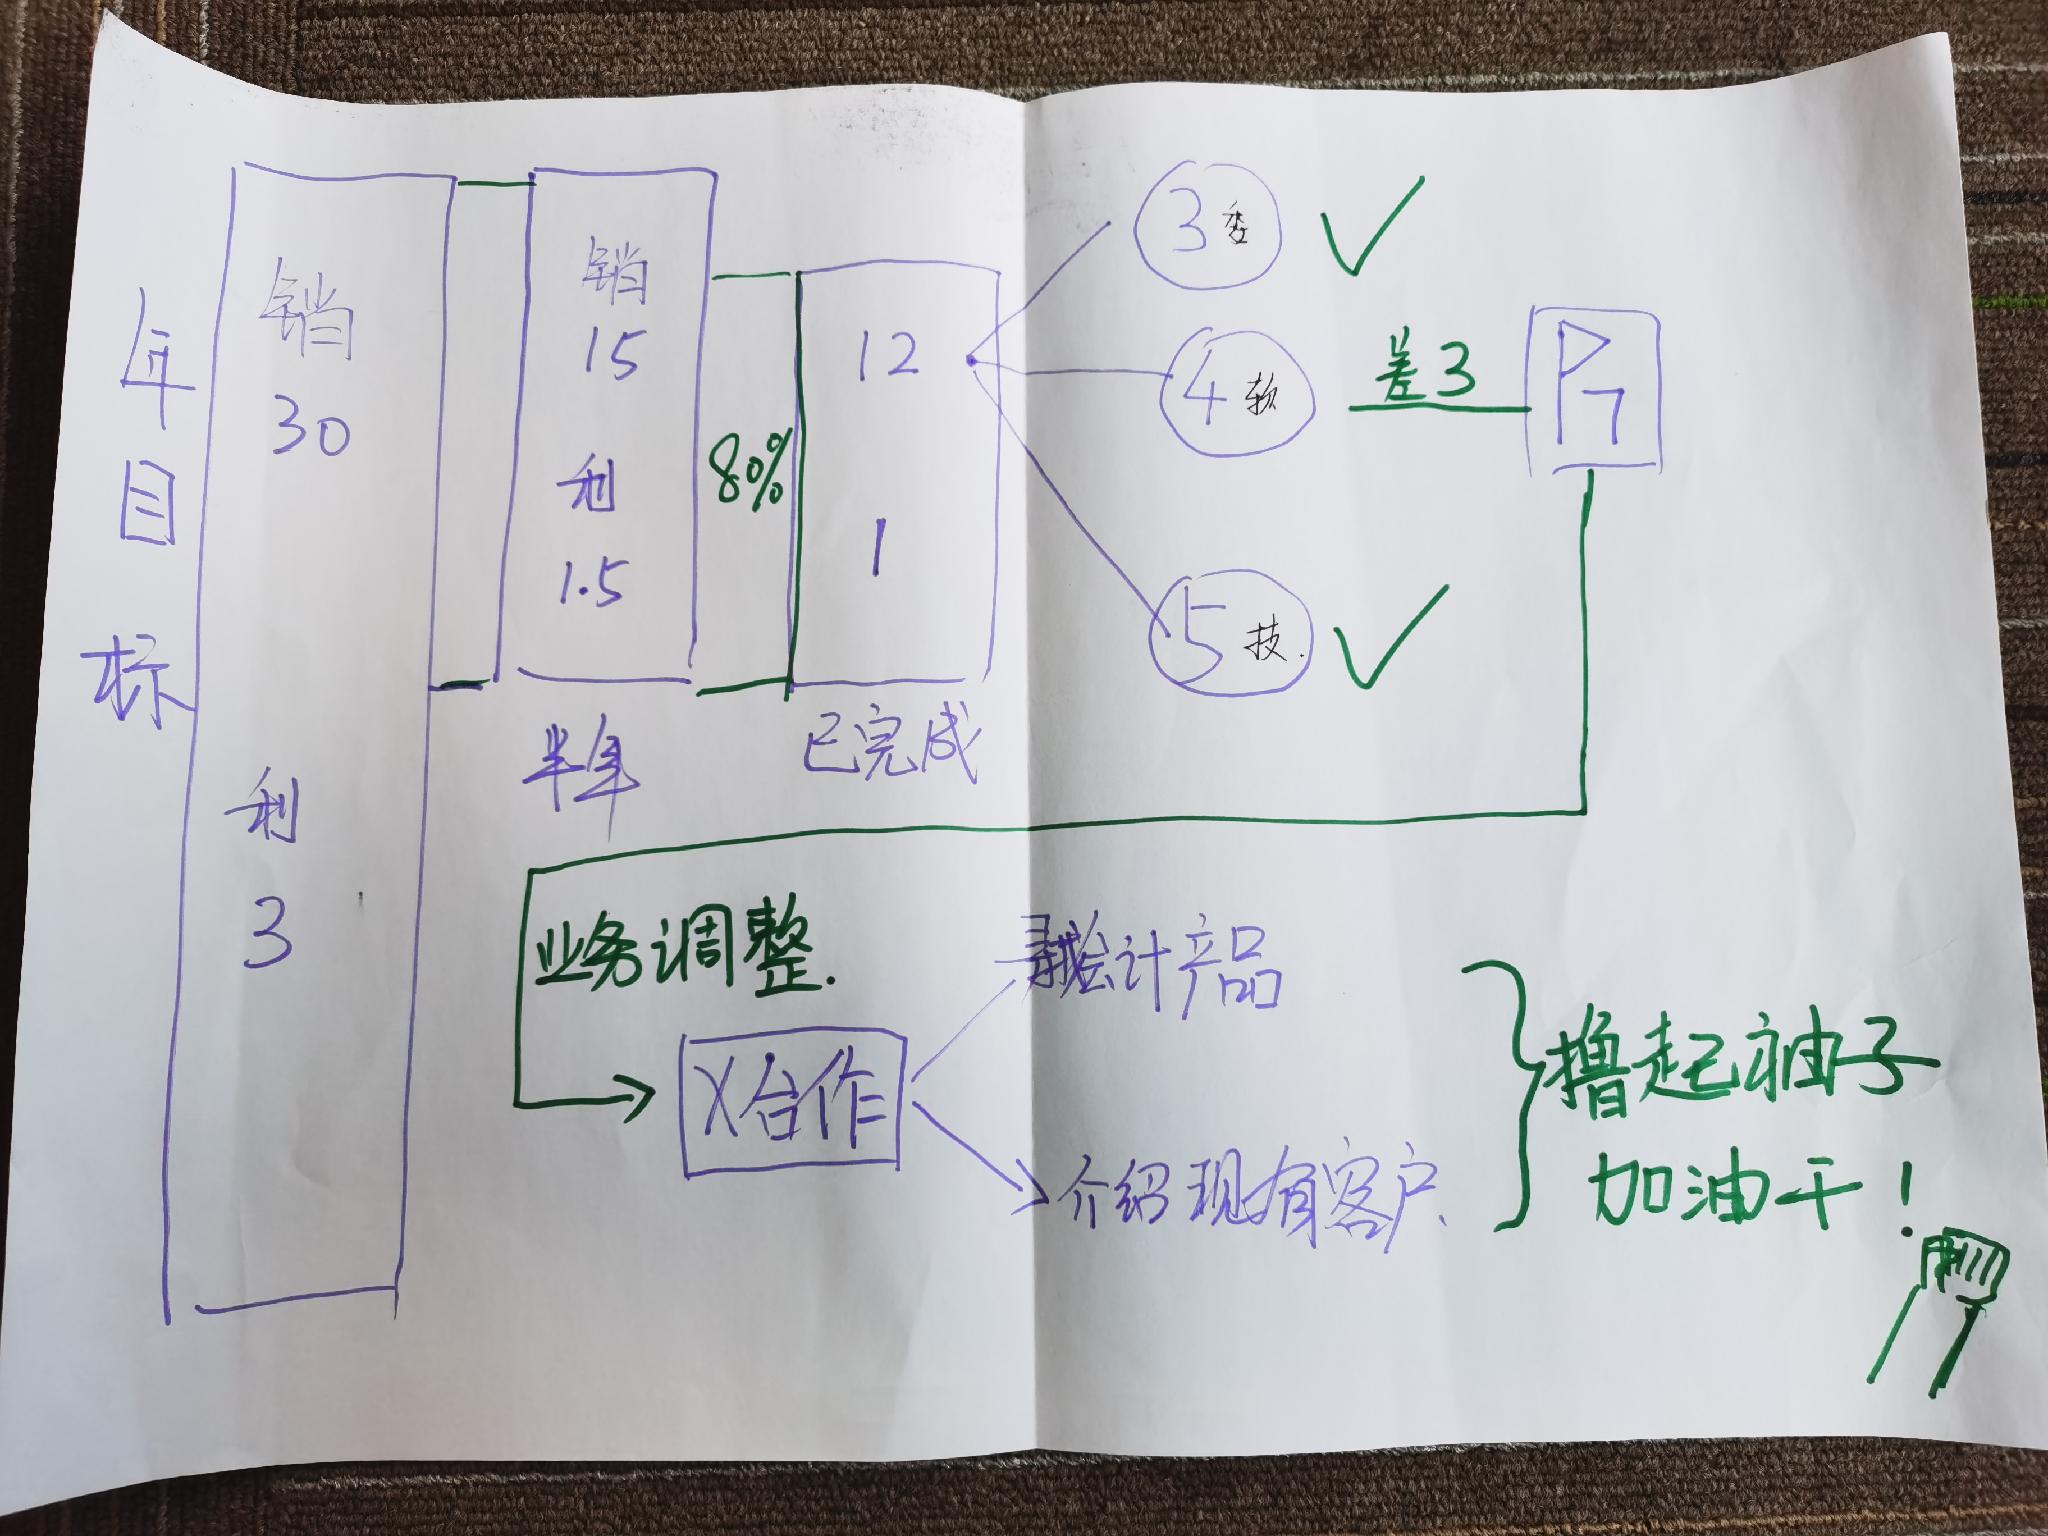 年目标
销
30
利
3
销
15
利
1.5
半年
80%
12
1
已完成
3 委
4 软
5 技.
差3
P
7
业务调整.
X合作
会计产品
介绍现有客户.
撸起袖子
加油干!